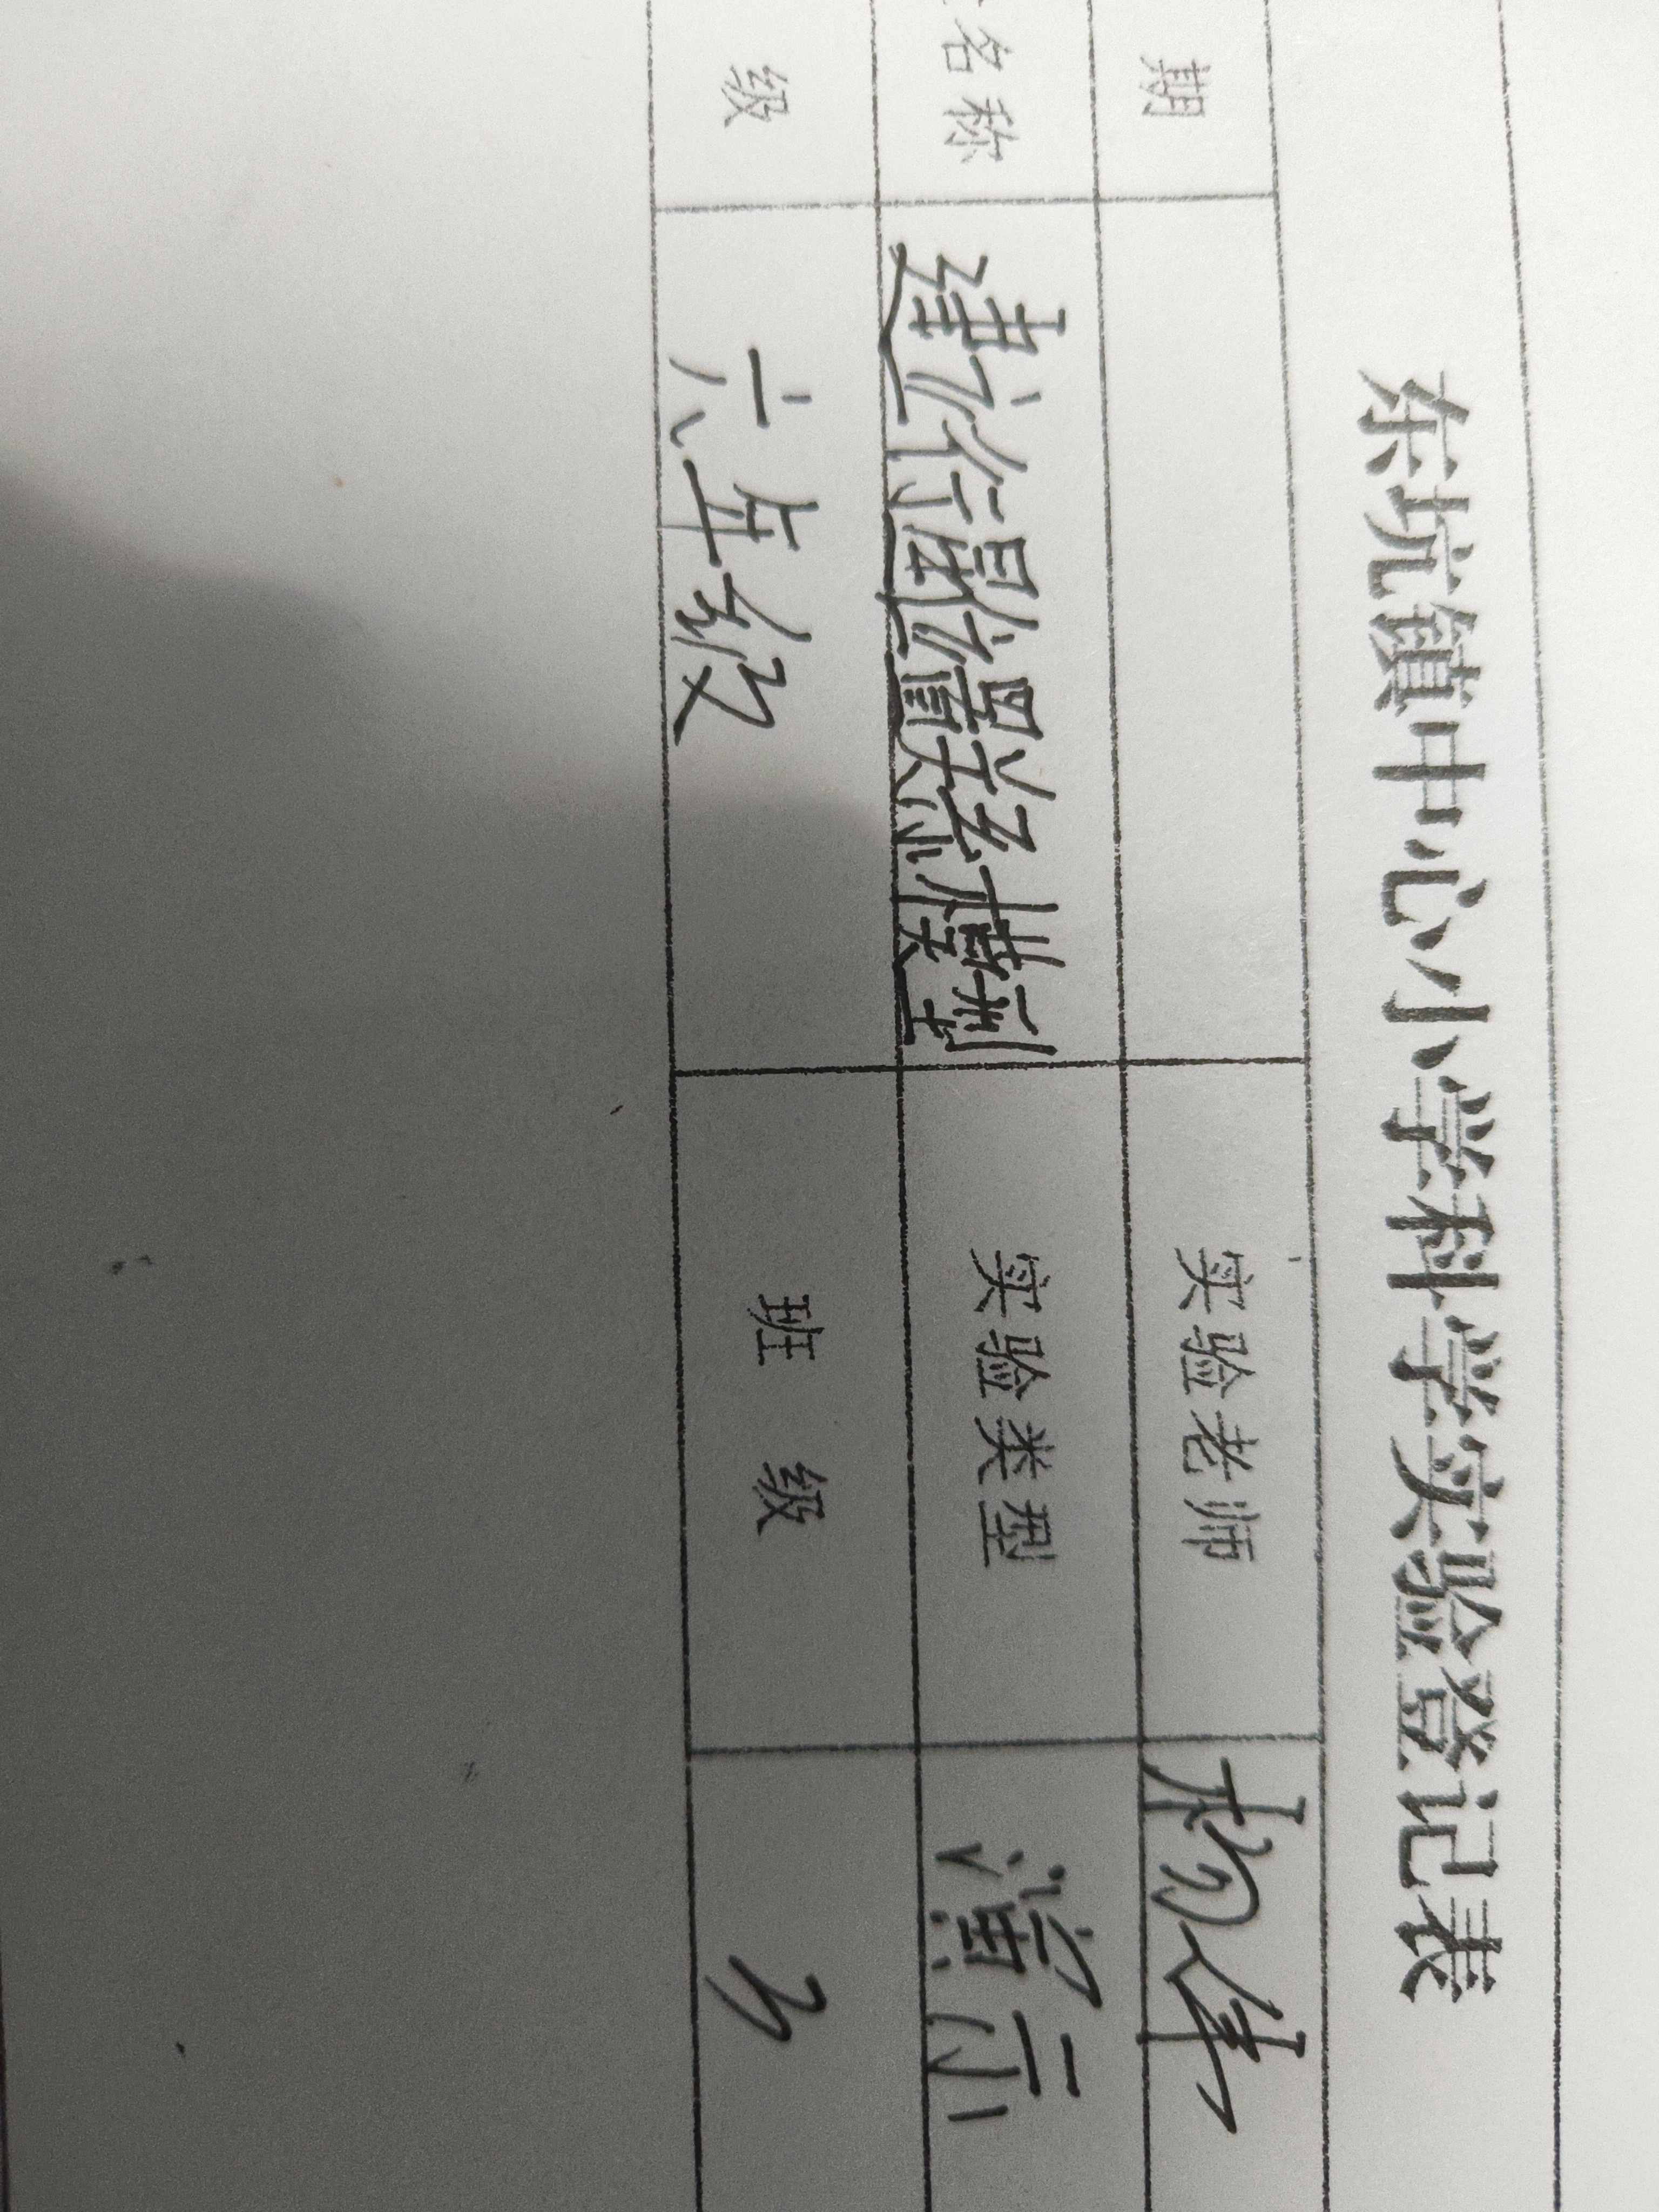 东坑镇中心小学科学实验登记表
期 实验老师 杨伟
名称 建立行星位置关系模型 实验类型 演示
级 六年级 班 级 3